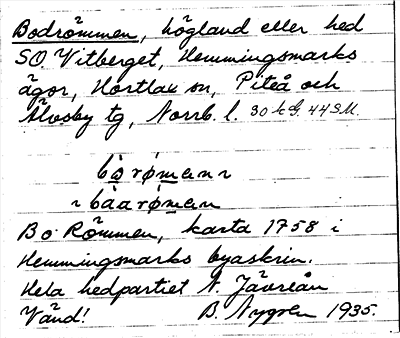 Bodrömmen, högland eller hed
SO. Vitberget, Hemmingsmarks
ägor, Hortlax sn, Piteå och
Älvsby tg, Norrb. l. 30 k G. 44 S M.
bò røman ~
~ bàarøman
Bo Römmen, karta 1758 i
Hemmingsmarks byaskrin.
Hela hedpartiet N. Jävreån
Vänd! B. Nygren 1935.